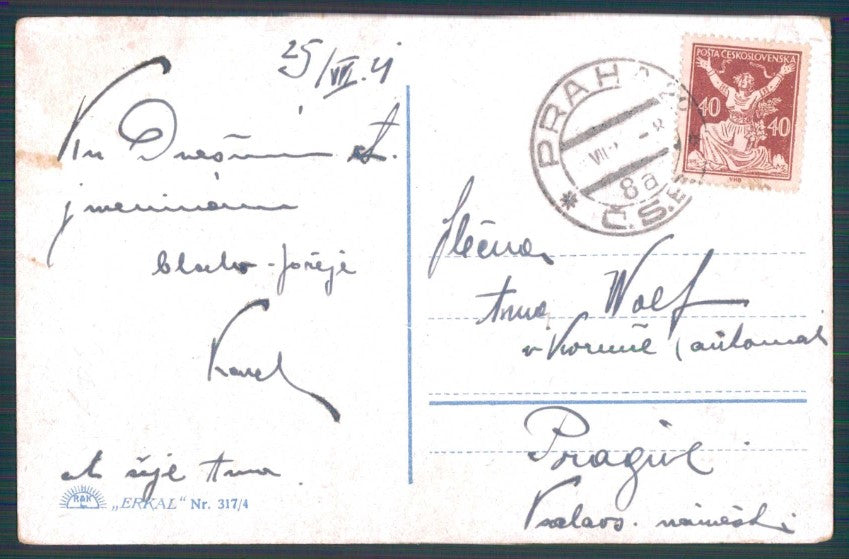 25/VII. 21
Ku Dnešním
jmeninám
blaho-přeje
Karel
"ERKAL" Nr. 317/4
POŠTA ČESKOSLOVENSKÁ
40 40
PRAHA
VII
8a
ČSR
Slečna
Anna Wolf
v Koruně (automat
Prag
náměstí